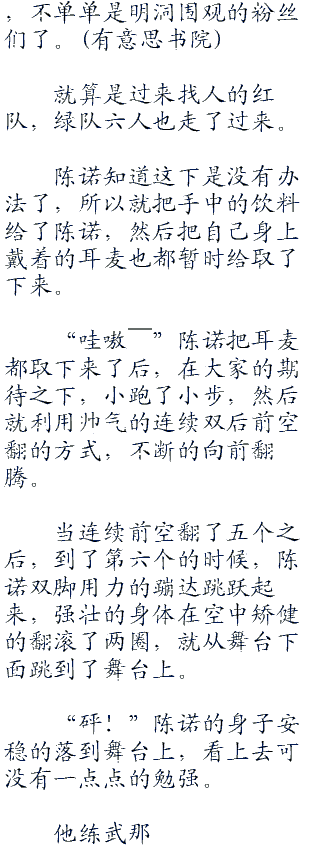 ，不单单是明洞围观的粉丝
们了。（有意思书院）
就算是过来找人的红
队，绿队六人也走了过来。
陈诺知道这下是没有办
法了，所以就把手中的饮料
给了陈诺，然后把自己身上
戴着的耳麦也都暂时给取了
下来。
“哇嗷——”陈诺把耳麦
都取下来了后，在大家的期
待之下，小跑了小步，然后
就利用帅气的连续双后前空
翻的方式，不断的向前翻
腾。
当连续前空翻了五个之
后，到了第六个的时候，陈
诺双脚用力的蹦达跳跃起
来，强壮的身体在空中矫健
的翻滚了两圈，就从舞台下
面跳到了舞台上。
“砰！”陈诺的身子安
稳的落到舞台上，看上去可
没有一点点的勉强。
他练武那